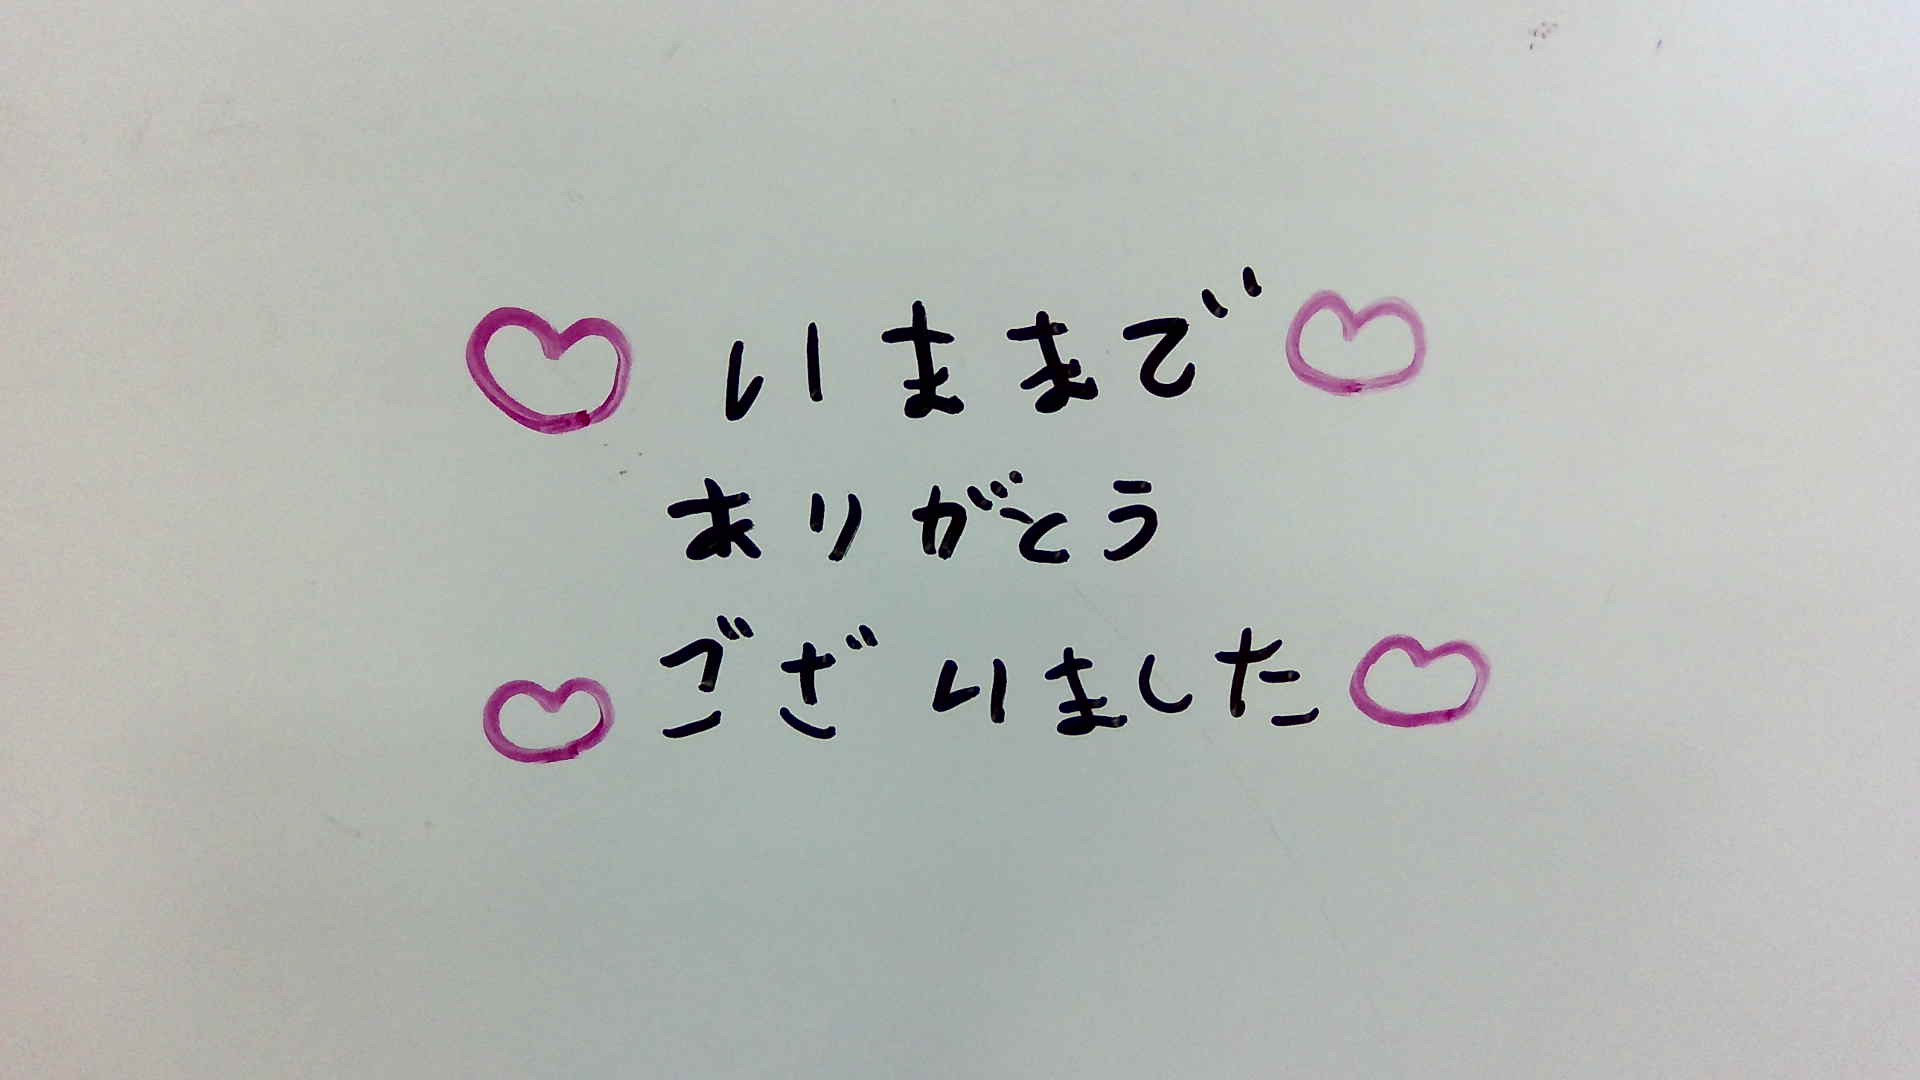 いままで
ありがとう
ございました